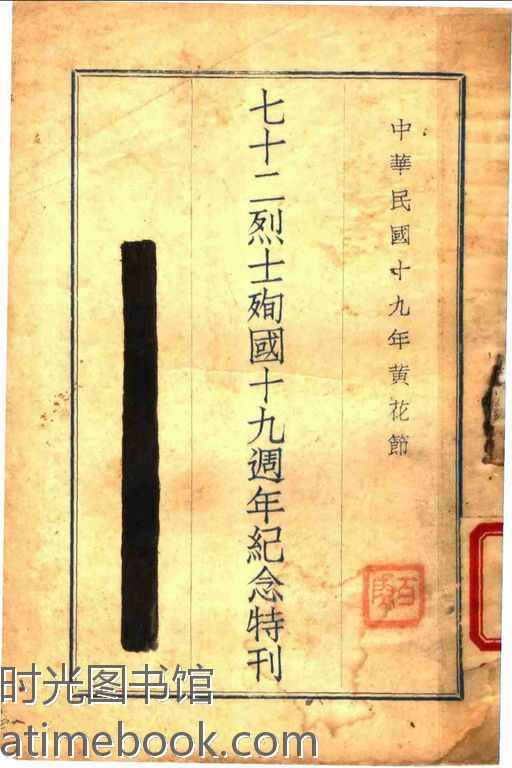 中華民國十九年黄花節
七十二烈士殉國十九週年紀念特刊
时光图书馆
atimebook.com